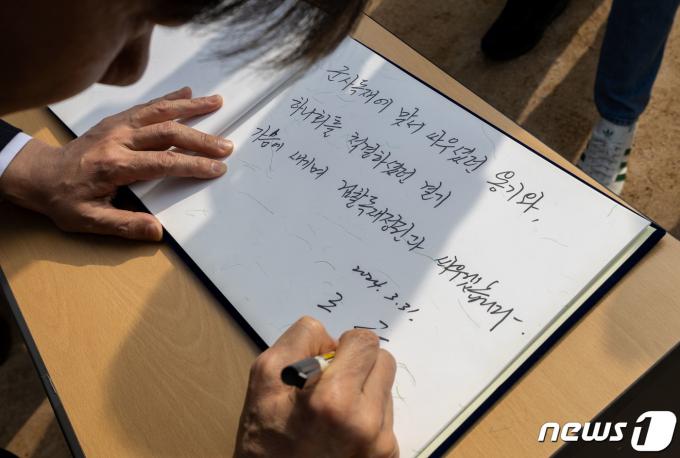 군사독재에 맞서 싸우셨던 용기와,
하나회를 척결하셨던 결기
가슴에 새기며 검찰독재정권과 싸우겠습니다.
2024. 3. 31.
조 구
news1